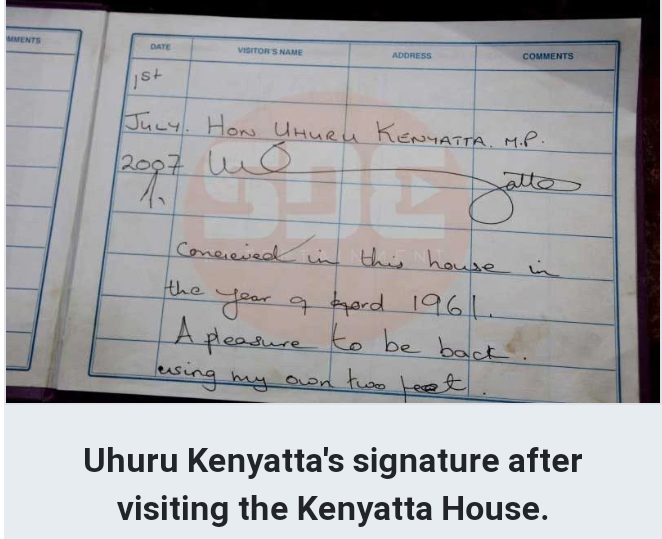 MMENTS
DATE VISITOR'S NAME ADDRESS COMMENTS
1st
July. HON UHURU KENYATTA. M.P.
2007
Concieved in this house in
the year of Lord 1961.
A pleasure to be back.
using my own two feet.
SDE
Uhuru Kenyatta's signature after
visiting the Kenyatta House.